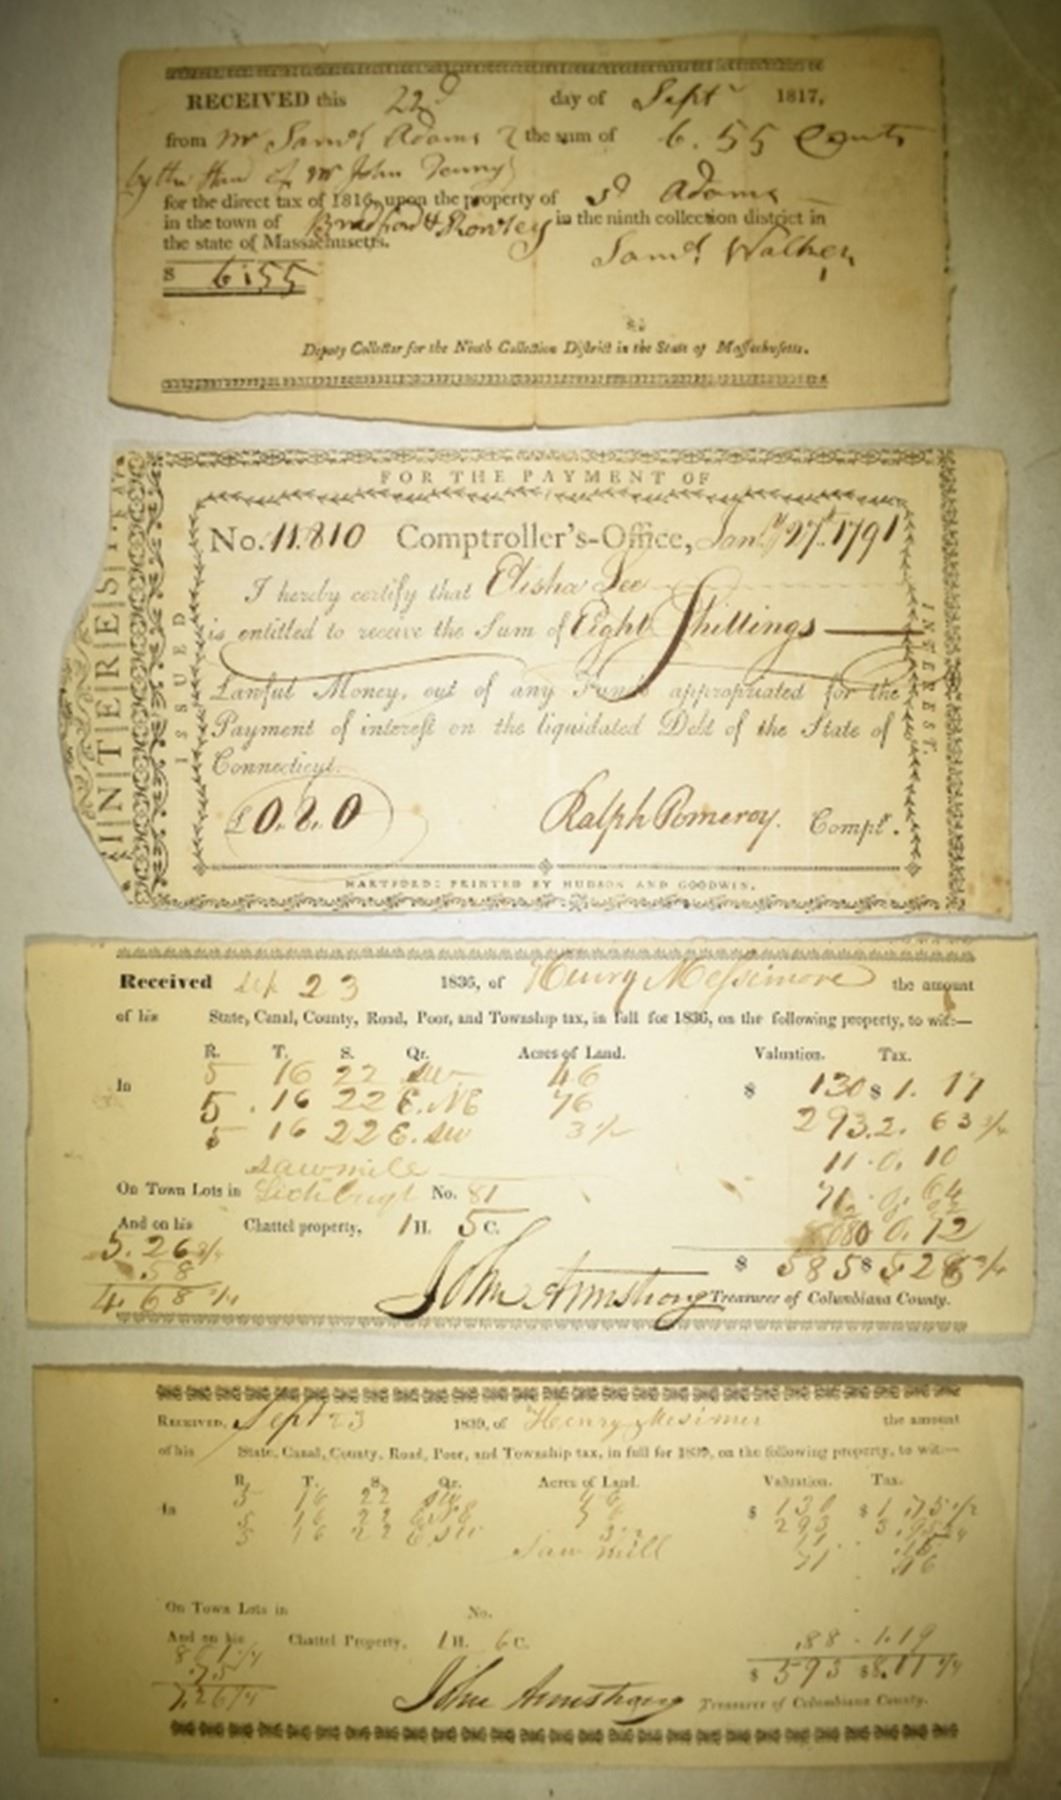 RECEIVED this 22d day of Sept 1817,
from Mr Saml Adams the sum of 6.55 Cents
by the Hand of Mr John Tenny
for the direct tax of 1816, upon the property of Sd Adams
in the town of Bradford & Rowley in the ninth collection district in
the state of Massachusetts.
Saml Walker
$ 6:55
Deputy Collector for the Ninth Collection District in the State of Massachusetts.
FOR THE PAYMENT OF
INTEREST
ISSUED
INTEREST.
No. 11.810 Comptroller's-Office, Jany 27th 1791
I hereby certify that Elisha Lee
is entitled to receive the Sum of Eight Shillings
Lawful Money, out of any Funds appropriated for the
Payment of interest on the liquidated Debt of the State of
Connecticut.
£0.8.0 Ralph Pomeroy. Compt.
HARTFORD: PRINTED BY HUDSON AND GOODWIN.
Received Sep 23 1836, of Henry Messimore the amount
of his State, Canal, County, Road, Poor, and Township tax, in full for 1836, on the following property, to wit:—
R. T. S. Qr. Acres of Land. Valuation. Tax.
In 5 16 22 SW 46 $ 130 $ 1. 17
5 . 16 22 E. NE 76 293. 2. 63 3/4
5 16 22 E. SW 3 1/2 11 . 0. 10
sawmill
On Town Lots in No. 81 71 . 0. 64
And on his Chattel property, 1 H. 5 C. 80 0. 72
5.26 3/4 $ 585 $ 5 26 3/4
.58
4.68 3/4 John Armstrong Treasurer of Columbiana County.
RECEIVED, Sept 23 1839, of Henry Mesimer the amount
of his State, Canal, County, Road, Poor, and Township tax, in full for 1839, on the following property, to wit:—
R. T. S. Qr. Acres of Land. Valuation. Tax.
In 5 16 22 SW 46 $ 130 $ 1.75 1/2
5 16 22 E NE 76 293 3.95
5 16 22 E SW 3 1/2 11 .15
Saw mill 71 .96
On Town Lots in No.
And on his Chattel Property, 1 H. 6 C. 88 . 1.19
8 01 1/4 $ 593 $ 8.01 1/4
.75
7.26 1/4 John Armstrong Treasurer of Columbiana County.